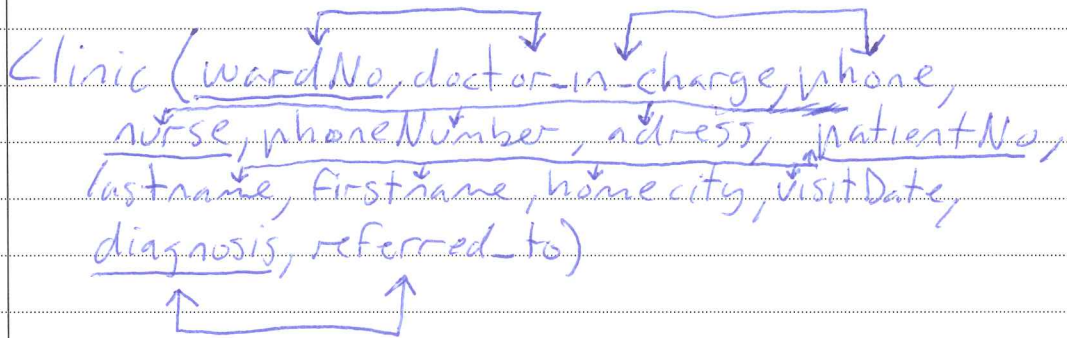 Clinic (wardNo, doctor_in_charge, phone,
nurse, phoneNumber, adress, patientNo,
lastname, firstname, homecity, visitDate,
diagnosis, referred_to)